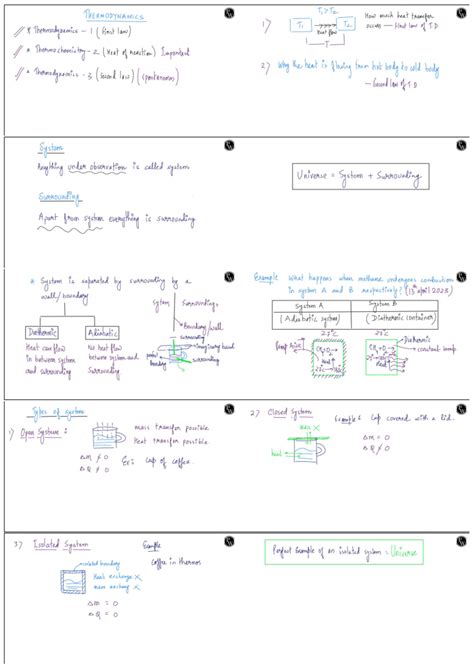 THERMODYNAMICS
* Thermodynamics - 1 (First law)
* Thermochemistry - 2 (Heat of reaction) Important
* Thermodynamics - 3 (Second law) (spontaneous)
1) T₁ > T₂
T₁ T₂
Heat flow
How much heat transfer
occurs — First law of T.D.
2) Why the heat is flowing from hot body to cold body
— Second law of T.D
System
Anything under observation is called system
Surrounding
Apart from system everything is surrounding
Universe = System + Surrounding
* System is separated by surrounding by a
wall / boundary
Diathermic
Heat can flow
in between system
and surrounding
Adiabatic
No heat flow
between system and
Surrounding
System Surroundings
Boundary / wall
surrounding
imaginary
boundary
surrounding
Example What happens when methane undergoes combustion
in system A and B respectively? (13th April 2023)
System A System B
(Adiabatic system) (Diathermic container)
Diathermic
constant temp
Types of system
1) Open System :
mass transfer possible
Heat transfer possible.
Δm ≠ 0
ΔQ ≠ 0
Ex: Cup of coffee.
2) Closed System
mass X
heat
Example : Cup covered with a lid.
Δm = 0
ΔQ ≠ 0
3) Isolated System
isolated boundary
Heat exchange X
mass exchange X
Δm = 0
ΔQ = 0
Example
Coffee in thermos
Perfect Example of an isolated system = Universe